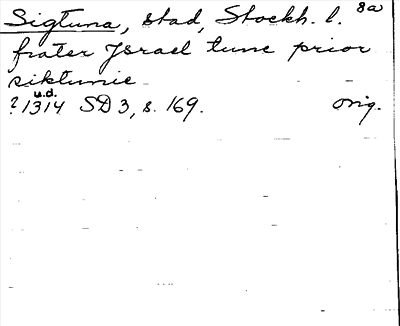 Sigtuna, stad, Stockh. l. 8a
frater Jsrael tunc prior
siktunie
u.d.
? 1314 SD 3, s. 169. orig.